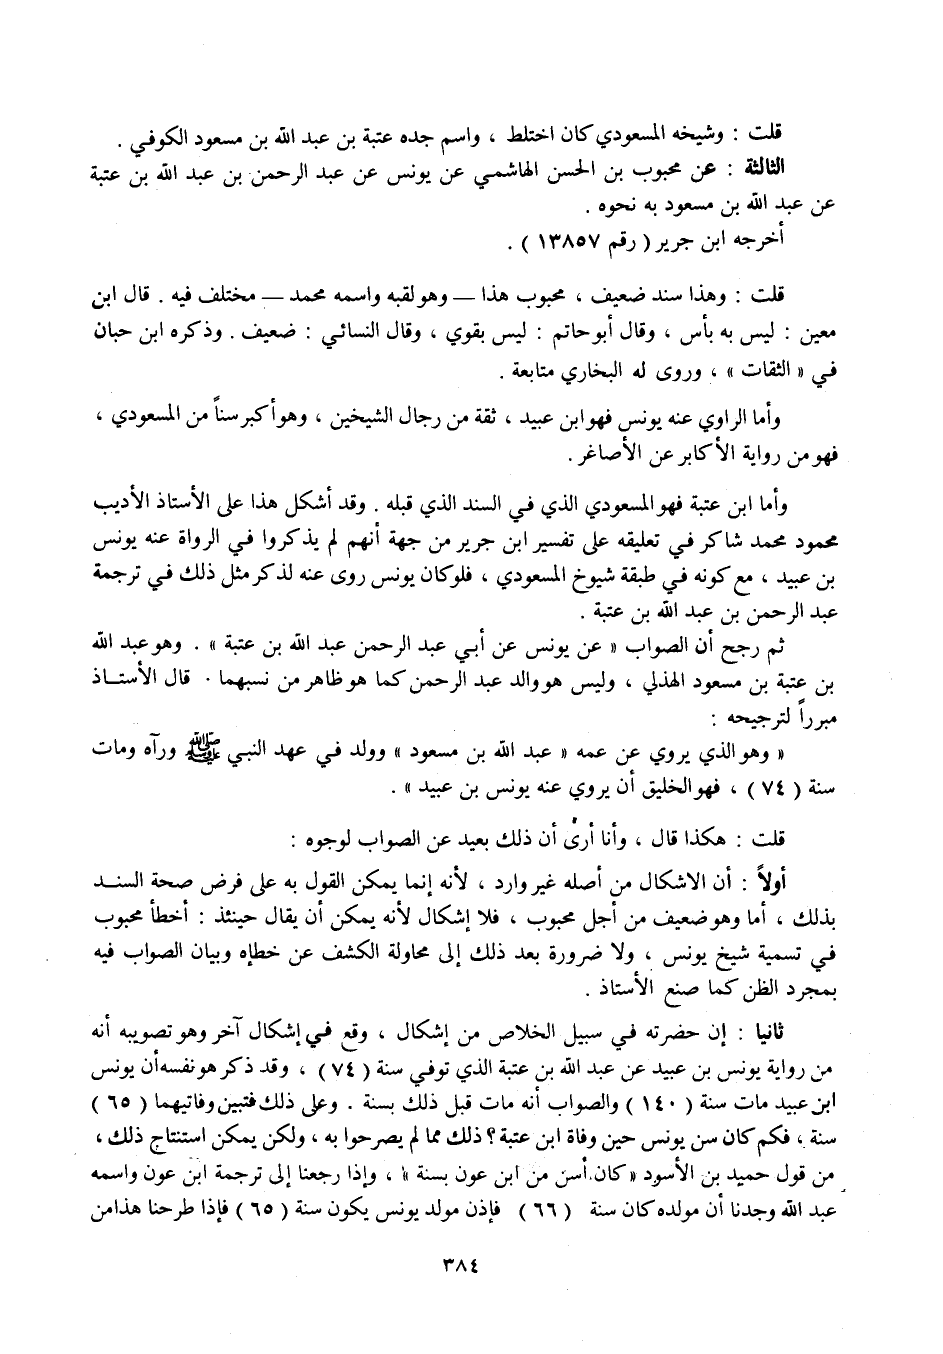 قلت : وشيخه المسعودي كان اختلط ، واسم جده عتبة بن عبد الله بن مسعود الكوفي .
الثالثة : عن محبوب بن الحسن الهاشمي عن يونس عن عبد الرحمن بن عبد الله بن عتبة
عن عبد الله بن مسعود به نحوه .
أخرجه ابن جرير ( رقم ١٣٨٥٧ ) .
قلت : وهذا سند ضعيف ، محبوب هذا — وهو لقبه واسمه محمد — مختلف فيه . قال ابن
معين : ليس به بأس ، وقال أبو حاتم : ليس بقوي ، وقال النسائي : ضعيف . وذكره ابن حبان
في « الثقات » ، وروى له البخاري متابعة .
وأما الراوي عنه يونس فهو ابن عبيد ، ثقة من رجال الشيخين ، وهو أكبر سناً من المسعودي ،
فهو من رواية الأكابر عن الأصاغر .
وأما ابن عتبة فهو المسعودي الذي في السند الذي قبله . وقد أشكل هذا على الأستاذ الأديب
محمود محمد شاكر في تعليقه على تفسير ابن جرير من جهة أنهم لم يذكروا في الرواة عنه يونس
بن عبيد ، مع كونه في طبقة شيوخ المسعودي ، فلو كان يونس روى عنه لذكر مثل ذلك في ترجمة
عبد الرحمن بن عبد الله بن عتبة .
ثم رجح أن الصواب « عن يونس عن أبي عبد الرحمن عبد الله بن عتبة » . وهو عبد الله
بن عتبة بن مسعود الهذلي ، وليس هو والد عبد الرحمن كما هو ظاهر من نسبهما . قال الأستاذ
مبرراً لترجيحه :
« وهو الذي يروي عن عمه « عبد الله بن مسعود » وولد في عهد النبي ﷺ ورآه ومات
سنة ( ٧٤ ) ، فهو الخليق أن يروي عنه يونس بن عبيد » .
قلت : هكذا قال ، وأنا أرىُ أن ذلك بعيد عن الصواب لوجوه :
أولاً : أن الاشكال من أصله غير وارد ، لأنه إنما يمكن القول به على فرض صحة السند
بذلك ، أما وهو ضعيف من أجل محبوب ، فلا إشكال لأنه يمكن أن يقال حينئذ : أخطأ محبوب
في تسمية شيخ يونس ، ولا ضرورة بعد ذلك إلى محاولة الكشف عن خطإه وبيان الصواب فيه
بمجرد الظن كما صنع الأستاذ .
ثانيا : إن حضرته في سبيل الخلاص من إشكال ، وقع في إشكال آخر وهو تصويبه أنه
من رواية يونس بن عبيد عن عبد الله بن عتبة الذي توفي سنة ( ٧٤ ) ، وقد ذكر هو نفسه أن يونس
ابن عبيد مات سنة ( ١٤٠ ) والصواب أنه مات قبل ذلك بسنة . وعلى ذلك فتبين وفاتيهما ( ٦٥ )
سنة ، فكم كان سن يونس حين وفاة ابن عتبة ؟ ذلك مما لم يصرحوا به ، ولكن يمكن استنتاج ذلك ،
من قول حميد بن الأسود « كان أسن من ابن عون بسنة » ، وإذا رجعنا إلى ترجمة ابن عون واسمه
عبد الله وجدنا أن مولده كان سنة ( ٦٦ ) فإذن مولد يونس يكون سنة ( ٦٥ ) فإذا طرحنا هذا من
٣٨٤